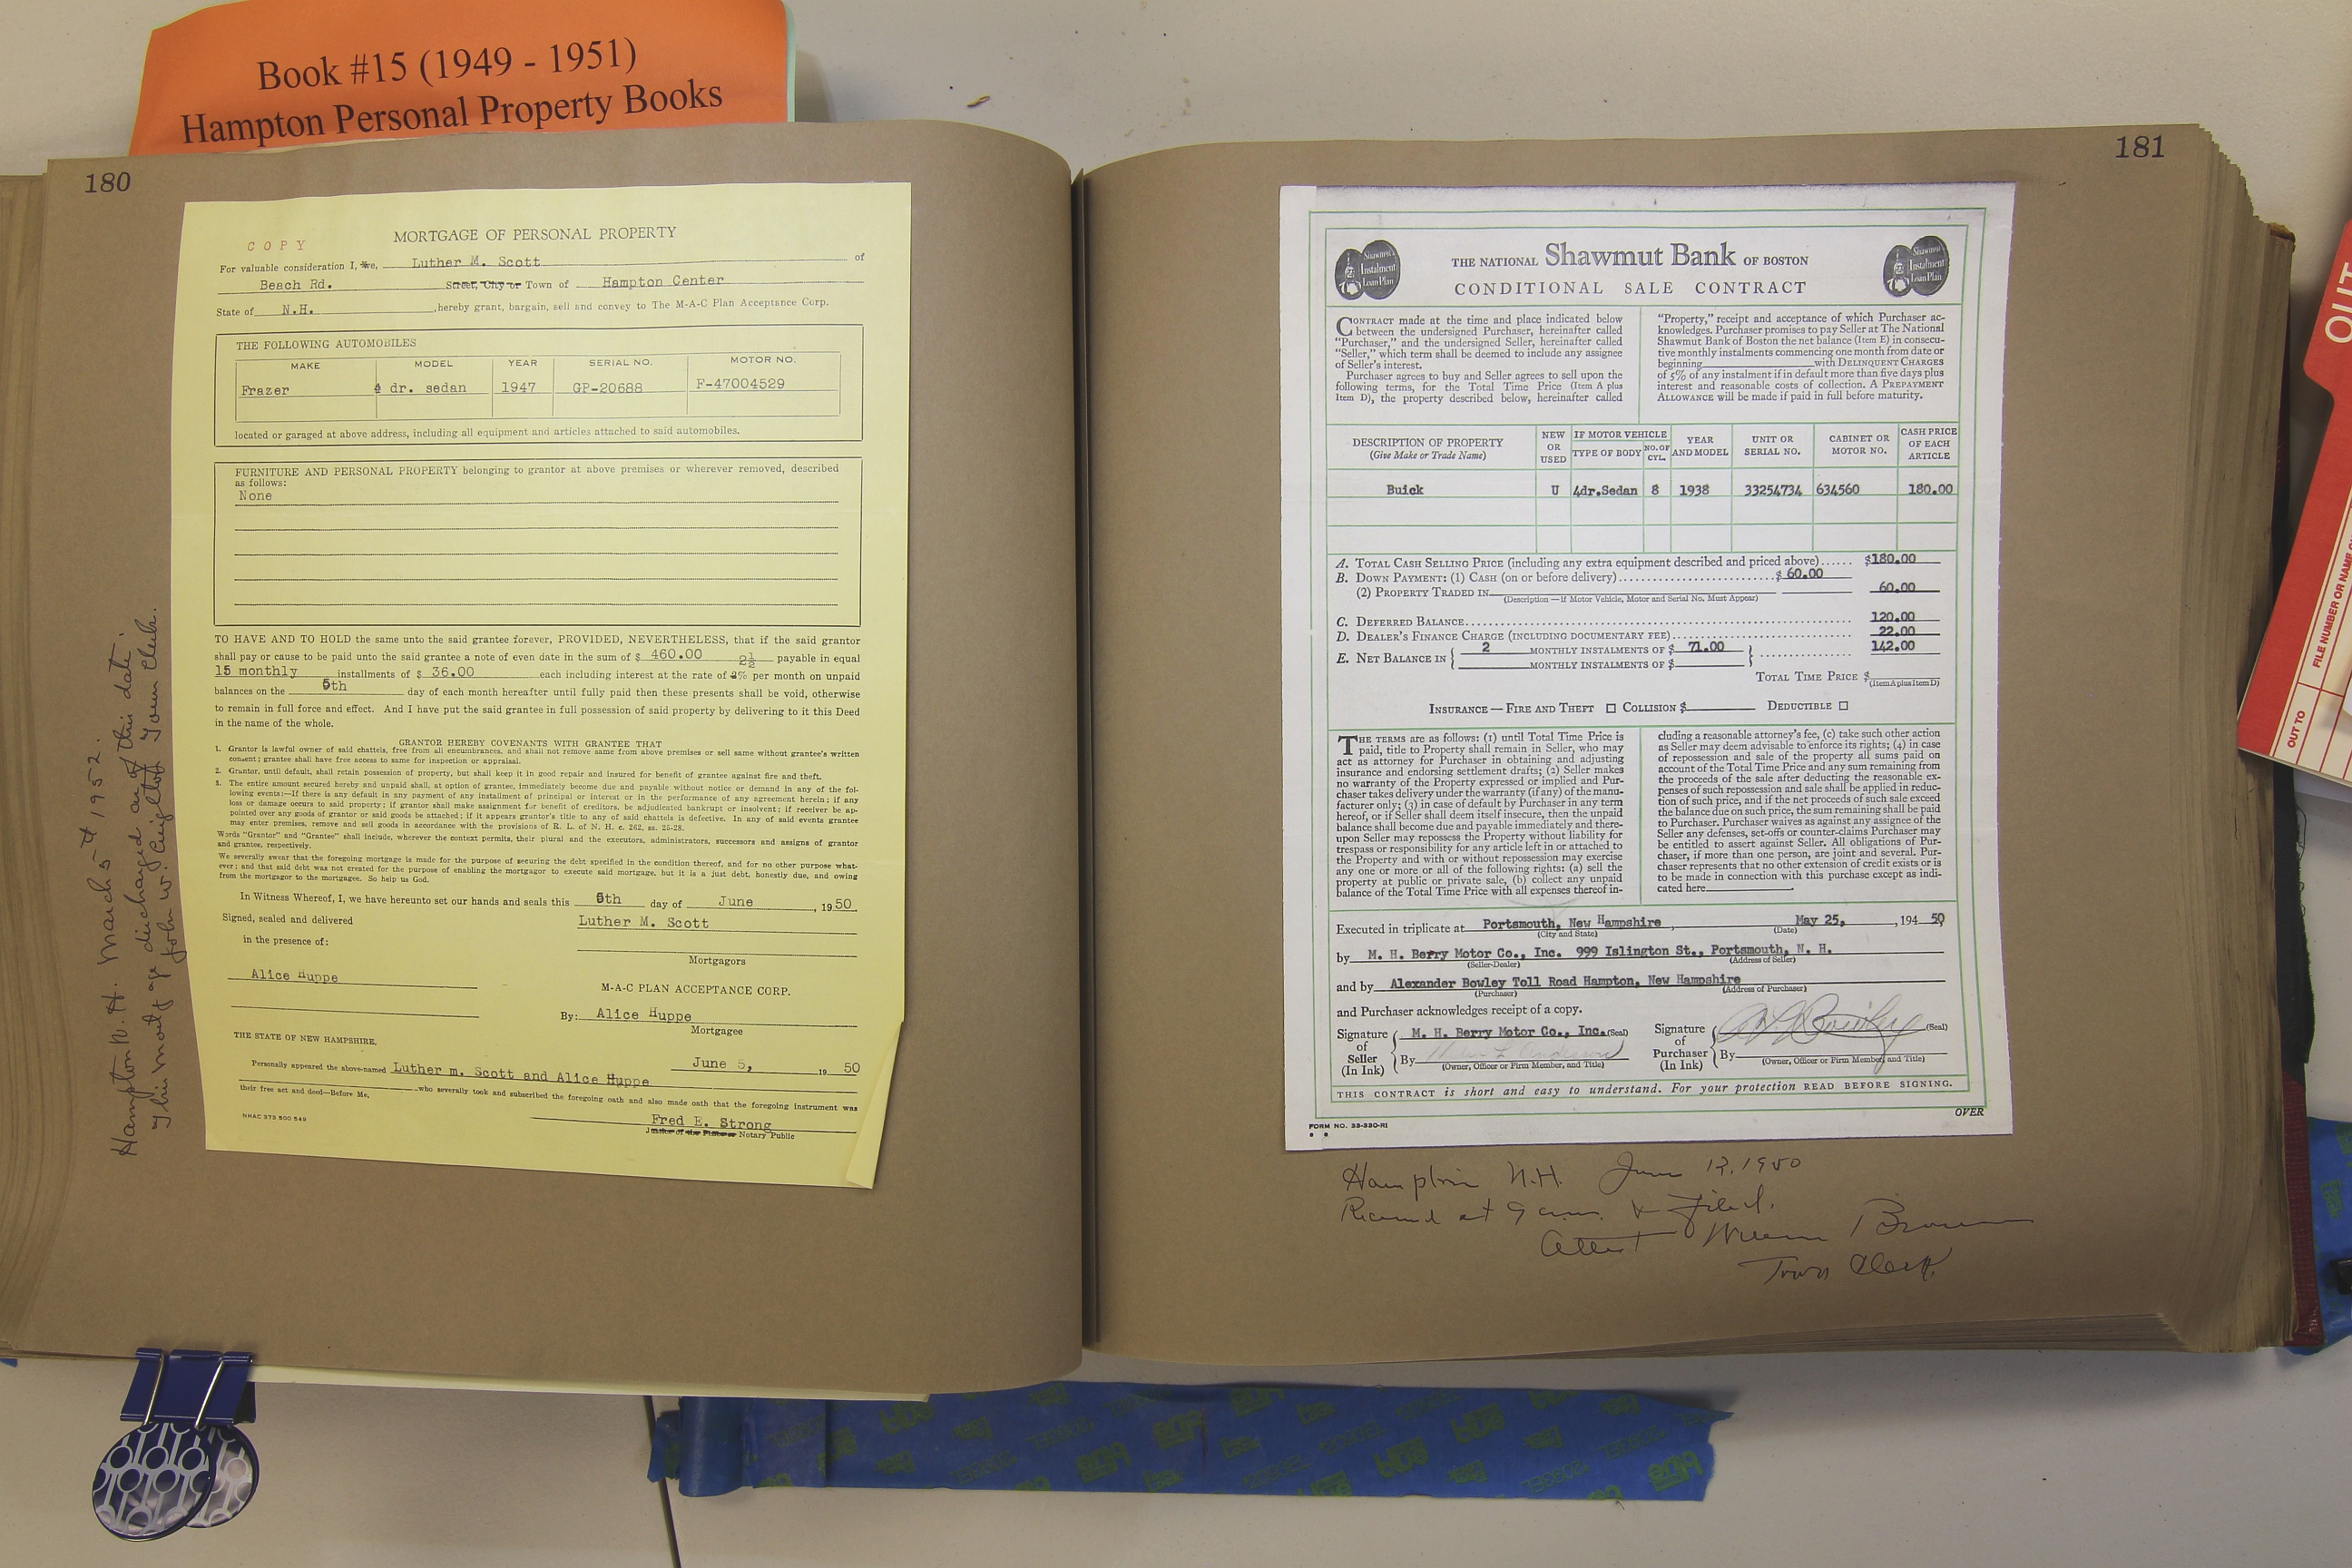 Book #15 (1949 - 1951)
Hampton Personal Property Books
180
COPY
MORTGAGE OF PERSONAL PROPERTY
For valuable consideration I, we, Luther M. Scott of
Beach Rd. Street, City or Town of Hampton Center
State of N.H. ,hereby grant, bargain, sell and convey to The M-A-C Plan Acceptance Corp.
THE FOLLOWING AUTOMOBILES
MAKE MODEL YEAR SERIAL NO. MOTOR NO.
Frazer 4 dr. sedan 1947 GP-20688 F-47004529
located or garaged at above address, including all equipment and articles attached to said automobiles.
FURNITURE AND PERSONAL PROPERTY belonging to grantor at above premises or wherever removed, described
as follows:
None
TO HAVE AND TO HOLD the same unto the said grantee forever, PROVIDED, NEVERTHELESS, that if the said grantor
shall pay or cause to be paid unto the said grantee a note of even date in the sum of $ 460.00 2½ payable in equal
15 monthly installments of $ 36.00 each including interest at the rate of 2% per month on unpaid
balances on the 5th day of each month hereafter until fully paid then these presents shall be void, otherwise
to remain in full force and effect. And I have put the said grantee in full possession of said property by delivering to it this Deed
in the name of the whole.
GRANTOR HEREBY COVENANTS WITH GRANTEE THAT
1. Grantor is lawful owner of said chattels, free from all encumbrances, and shall not remove same from above premises or sell same without grantee's written
consent; grantee shall have free access to same for inspection or appraisal.
2. Grantor, until default, shall retain possession of property, but shall keep it in good repair and insured for benefit of grantee against fire and theft.
3. The entire amount secured hereby and unpaid shall, at option of grantee, immediately become due and payable without notice or demand in any of the fol-
lowing events:—If there is any default in any payment of any installment of principal or interest or in the performance of any agreement herein; if any
loss or damage occurs to said property; if grantor shall make assignment for benefit of creditors, be adjudicated bankrupt or insolvent; if receiver be ap-
pointed over any goods of grantor or said goods be attached; if it appears grantor's title to any of said chattels is defective. In any of said events grantee
may enter premises, remove and sell goods in accordance with the provisions of R. L. of N. H. c. 262, ss. 25-28.
Words "Grantor" and "Grantee" shall include, wherever the context permits, their plural and the executors, administrators, successors and assigns of grantor
and grantee, respectively.
We severally swear that the foregoing mortgage is made for the purpose of securing the debt specified in the condition thereof, and for no other purpose what-
ever; and that said debt was not created for the purpose of enabling the mortgagor to execute said mortgage, but it is a just debt, honestly due, and owing
from the mortgagor to the mortgagee. So help us God.
In Witness Whereof, I, we have hereunto set our hands and seals this 5th day of June , 19 50
Signed, sealed and delivered Luther M. Scott
in the presence of:
Mortgagors
Alice Huppe
M-A-C PLAN ACCEPTANCE CORP.
By: Alice Huppe
Mortgagee
THE STATE OF NEW HAMPSHIRE,
June 5, 19 50
Personally appeared the above-named Luther m. Scott and Alice Huppe
who severally took and subscribed the foregoing oath and also made oath that the foregoing instrument was
their free act and deed—Before Me,
Fred E. Strong
Justice of the Peace Notary Public
NHAC 373 500 549
Hampton N. H. March 5th 1952.
This mortgage discharged as of this date.
John W. Creighton Town Clerk.
181
THE NATIONAL Shawmut Bank OF BOSTON
CONDITIONAL SALE CONTRACT
Shawmut Instalment Loan Plan
Shawmut Instalment Loan Plan
CONTRACT made at the time and place indicated below
between the undersigned Purchaser, hereinafter called
"Purchaser," and the undersigned Seller, hereinafter called
"Seller," which term shall be deemed to include any assignee
of Seller's interest.
Purchaser agrees to buy and Seller agrees to sell upon the
following terms, for the Total Time Price (Item A plus
Item D), the property described below, hereinafter called
"Property," receipt and acceptance of which Purchaser ac-
knowledges. Purchaser promises to pay Seller at The National
Shawmut Bank of Boston the net balance (Item E) in consecu-
tive monthly instalments commencing one month from date or
beginning with DELINQUENT CHARGES
of 5% of any instalment if in default more than five days plus
interest and reasonable costs of collection. A PREPAYMENT
ALLOWANCE will be made if paid in full before maturity.
DESCRIPTION OF PROPERTY
(Give Make or Trade Name)
NEW OR USED
IF MOTOR VEHICLE
TYPE OF BODY
NO. OF CYL.
YEAR AND MODEL
UNIT OR SERIAL NO.
CABINET OR MOTOR NO.
CASH PRICE OF EACH ARTICLE
Buick U 4dr.Sedan 8 1938 33254734 634560 180.00
A. TOTAL CASH SELLING PRICE (including any extra equipment described and priced above)...... $180.00
B. DOWN PAYMENT: (1) CASH (on or before delivery)........ $ 60.00
(2) PROPERTY TRADED IN 60.00
(Description—if Motor Vehicle, Motor and Serial No. Must Appear)
C. DEFERRED BALANCE........ 120.00
D. DEALER'S FINANCE CHARGE (INCLUDING DOCUMENTARY FEE)........ 22.00
E. NET BALANCE IN { 2 MONTHLY INSTALMENTS OF $ 71.00 } ........ 142.00
MONTHLY INSTALMENTS OF $
TOTAL TIME PRICE $
(Item A plus Item D)
INSURANCE — FIRE AND THEFT ☐ COLLISION $ DEDUCTIBLE ☐
THE TERMS are as follows: (1) until Total Time Price is
paid, title to Property shall remain in Seller, who may
act as attorney for Purchaser in obtaining and adjusting
insurance and endorsing settlement drafts; (2) Seller makes
no warranty of the Property expressed or implied and Pur-
chaser takes delivery under the warranty (if any) of the manu-
facturer only; (3) in case of default by Purchaser in any term
hereof, or if Seller shall deem itself insecure, then the unpaid
balance shall become due and payable immediately and there-
upon Seller may repossess the Property without liability for
trespass or responsibility for any article left in or attached to
the Property and with or without repossession may exercise
any one or more or all of the following rights: (a) sell the
property at public or private sale, (b) collect any unpaid
balance of the Total Time Price with all expenses thereof in-
cluding a reasonable attorney's fee, (c) take such other action
as Seller may deem advisable to enforce its rights; (4) in case
of repossession and sale of the property all sums paid on
account of the Total Time Price and any sum remaining from
the proceeds of the sale after deducting the reasonable ex-
penses of such repossession and sale shall be applied in reduc-
tion of such price, and if the net proceeds of such sale exceed
the balance due on such price, the sum remaining shall be paid
to Purchaser. Purchaser waives as against any assignee of the
Seller any defenses, set-offs or counter-claims Purchaser may
be entitled to assert against Seller. All obligations of Pur-
chaser, if more than one person, are joint and several. Pur-
chaser represents that no other extension of credit exists or is
to be made in connection with this purchase except as indi-
cated here
Executed in triplicate at Portsmouth, New Hampshire , May 25, , 194 50
(City and State) (Date)
by M. H. Berry Motor Co., Inc. 999 Islington St., Portsmouth, N. H.
(Seller-Dealer) (Address of Seller)
and by Alexander Bowley Toll Road Hampton, New Hampshire
(Purchaser) (Address of Purchaser)
and Purchaser acknowledges receipt of a copy.
Signature of Seller (In Ink) M. H. Berry Motor Co., Inc. (Seal)
By
(Owner, Officer or Firm Member, and Title)
Signature of Purchaser (In Ink) (Seal)
By
(Owner, Officer or Firm Member, and Title)
THIS CONTRACT is short and easy to understand. For your protection READ BEFORE SIGNING.
OVER
FORM NO. 33-330-R1
Hampton N.H. June 13, 1950
Received at 9 a.m. & Filed.
Attest William Brown
Town Clerk
OUT
FILE NUMBER OR NAME
OUT TO